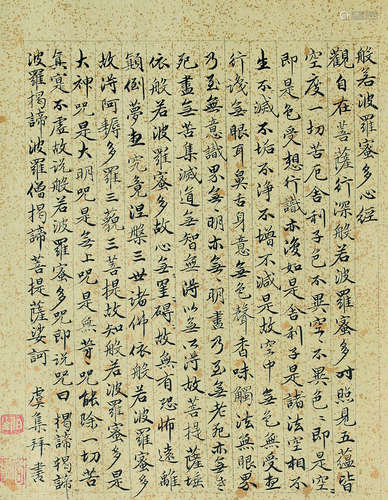 般若波羅蜜多心經
觀自在菩薩行深般若波羅蜜多時照見五蘊皆
空度一切苦厄舍利子色不異空空不異色色即是空空
即是色受想行識亦復如是舍利子是諸法空相不
生不滅不垢不淨不增不減是故空中無色無受想
行識無眼耳鼻舌身意無色聲香味觸法無眼界
乃至無意識界無無明亦無無明盡乃至無老死亦無老
死盡無苦集滅道無智無得以無所得故菩提薩埵
依般若波羅蜜多故心無罣礙故無有恐怖遠離
顛倒夢想究竟涅槃三世諸佛依般若波羅蜜多
故得阿耨多羅三藐三菩提故知般若波羅蜜多是
大神咒是大明咒是無上咒是無等等咒能除一切苦
真實不虛故說般若波羅蜜多咒即說咒曰 揭諦揭諦
波羅揭諦波羅僧揭諦菩提薩婆訶 虞集拜書